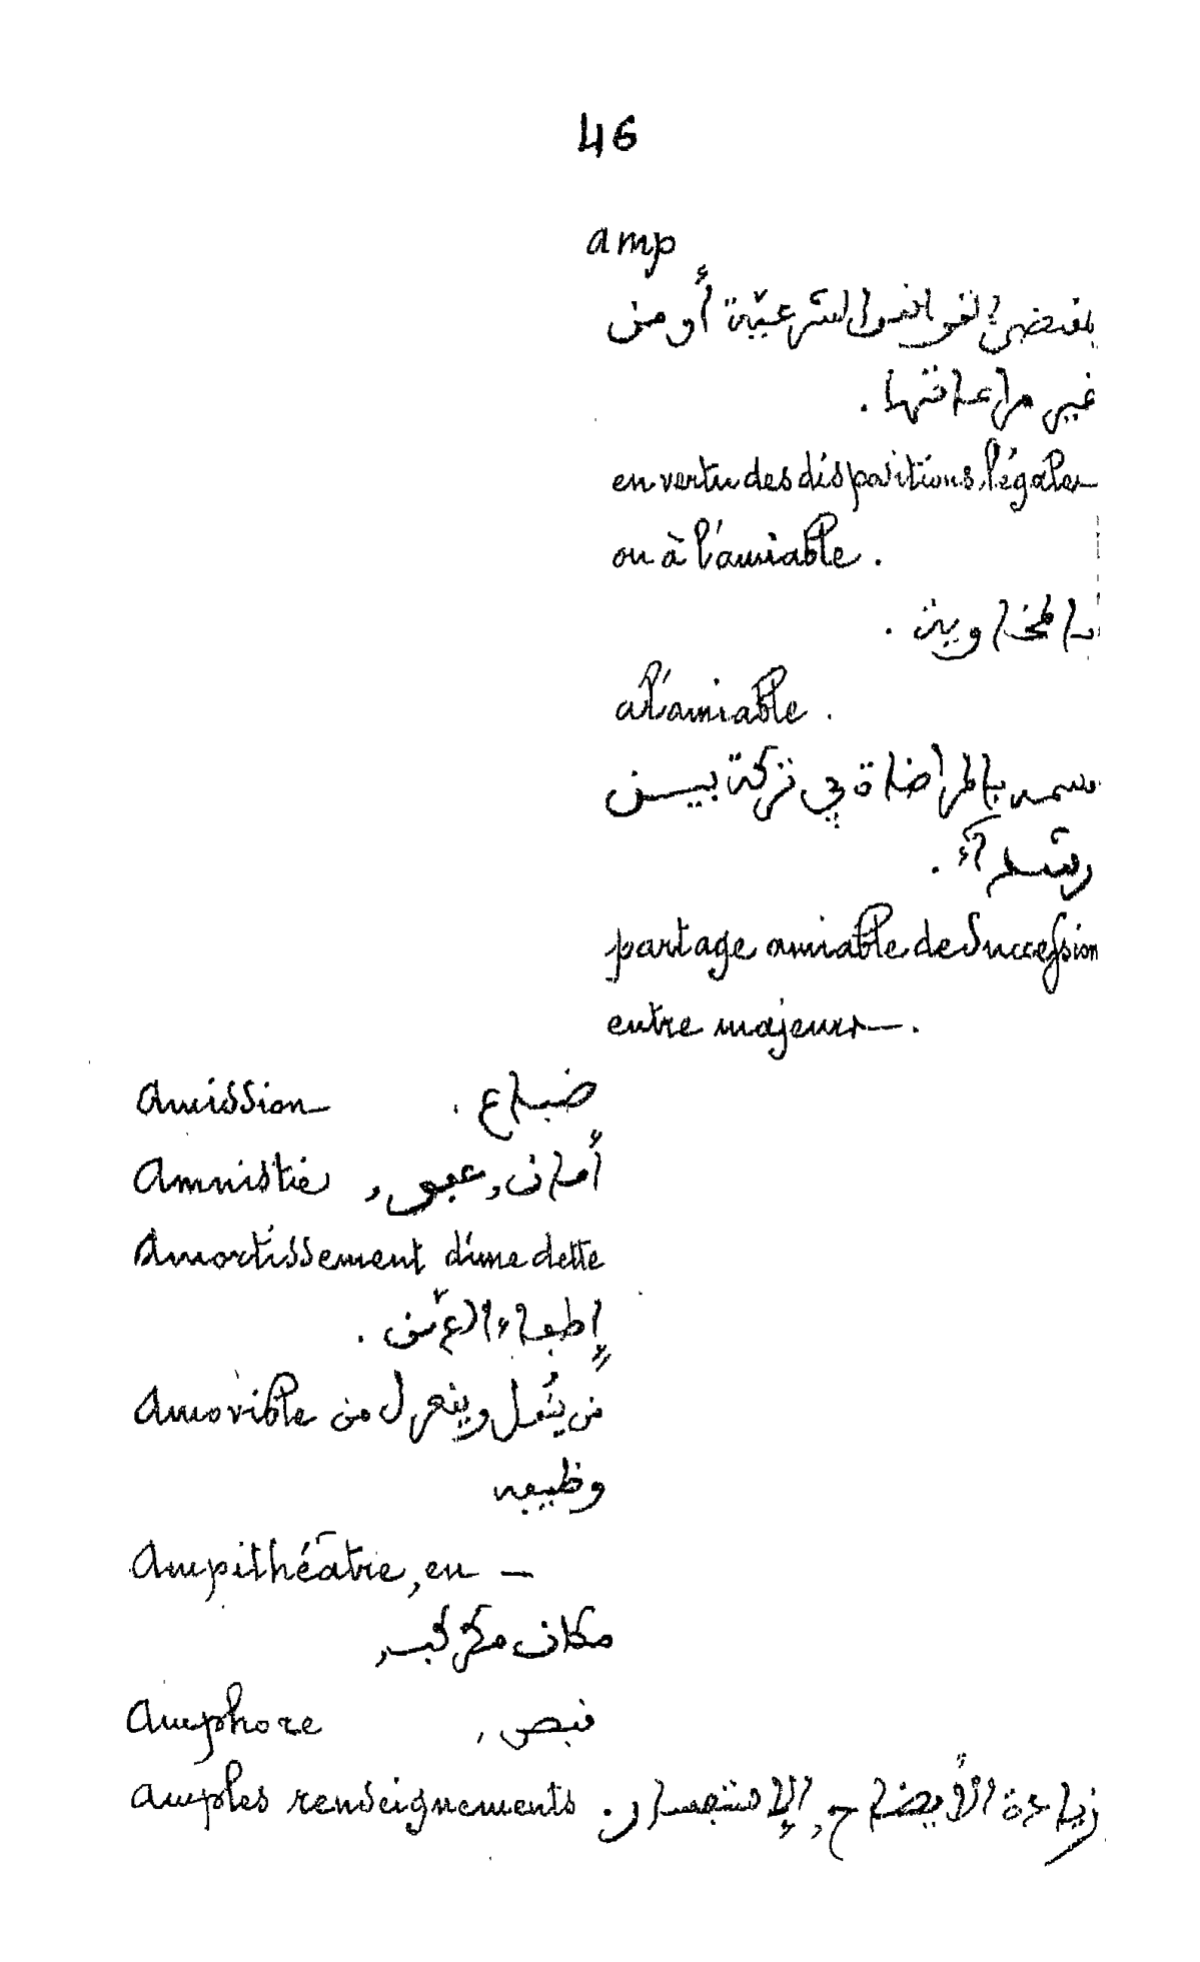 46
amp
بمقتضى القوانين الشرعيّة أو من
غير مراعاتها .
en vertu des dispositions légales
ou à l'amiable .
بالمخاوية .
a l'amiable .
قسمة بالمراضاة في تركة بين
رشدآء .
partage amiable de succession
entre majeurs .
Amission ضياع .
Amnistie أمان، عفو،
Amortissement d'une dette
إطفاء الدّين .
Amovible من يُنقل وينعزل من
وظيفه
Ampithéâtre, en —
مكان مركب،
Amphore
amples renseignements . زيادة الأيضاح، الإستفسار